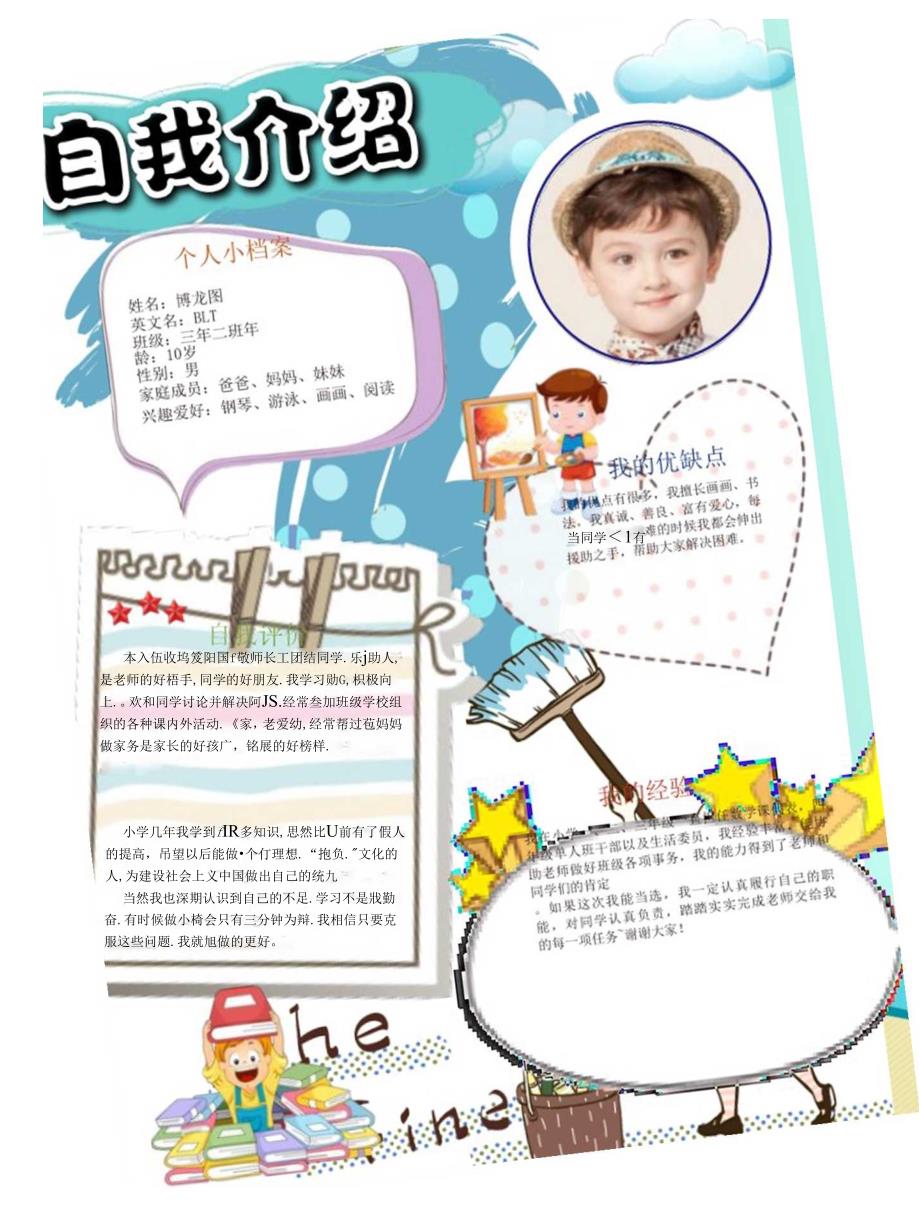 自我介绍
个人小档案
姓名：博龙图
英文名：BLT
班级：三年二班年
龄：10岁
性别：男
家庭成员：爸爸、妈妈、妹妹
兴趣爱好：钢琴、游泳、画画、阅读
我的优缺点
我的优点有很多，我擅长画画、书
法。我真诚、善良、富有爱心，每
当同学<1有难的时候我都会伸出
援助之手，帮助大家解决困难。
自我评价
本入伍收坞笈阳国f敬师长工团结同学.乐j助人,
是老师的好梧手,同学的好朋友.我学习勋G,枳极向
上.。欢和同学讨论并解决阿JS.经常叁加班级学校组
织的各种课内外活动.《家，老爱幼,经常帮过苞妈妈
做家务是家长的好孩广，铭展的好榜样.
小学几年我学到fIR多知识,思然比U前有了假人
的提高，吊望以后能做•个仃理想.“抱负."文化的
人,为建设社会上义中国做出自己的统九
当然我也深期认识到自己的不足.学习不是戕勤
奋.有时候做小椅会只有三分钟为辩.我相信只要克
服这些问题.我就旭做的更好。
我的经验
我在小学 三年级 任数学课代表，
年级单人班干部以及生活委员，我经验丰富
助老师做好班级各项事务，我的能力得到了老师和
同学们的肯定
。如果这次我能当选，我一定认真履行自己的职
能，对同学认真负责，踏踏实实完成老师交给我
的每一项任务~谢谢大家！
he
ine